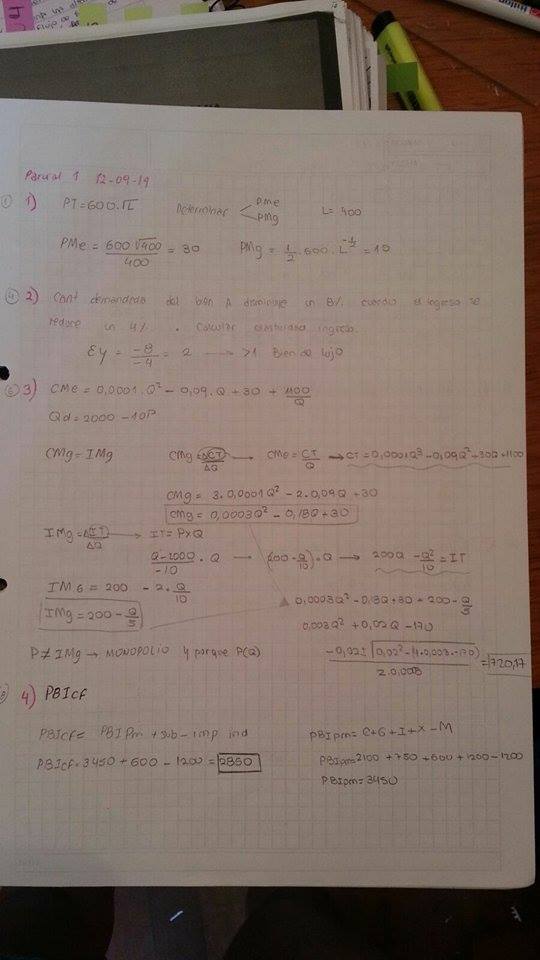 Parcial 1 12-09-19
① 1) PT=600.√L Determinar PMe PMg L= 400
PMe = 600 √400 / 400 = 30 PMg = 1/2 . 600 . L^-1/2 = 10
④ 2) Cant demandada del bien A disminuye un 8% cuando el ingreso se
reduce un 4% . Calcular elasticidad ingreso.
Ey = -8 / -4 = 2 → >1 Bien de lujo
3) CMe = 0,0001.Q² - 0,09.Q + 30 + 1100/Q
Qd = 2000 - 10P
CMg = IMg CMg = ΔCT/ΔQ → CMe = CT/Q → CT = 0,0001Q³ - 0,09Q² + 30Q + 1100
CMg = 3.0,0001Q² - 2.0,09Q + 30
CMg = 0,0003Q² - 0,18Q + 30
IMg = ΔIT/ΔQ → IT = P×Q
Q-2000 / -10 . Q → (200 - Q/10) . Q → 200Q - Q²/10 = IT
IMG = 200 - 2.Q/10
IMg = 200 - Q/5
0,0003Q² - 0,18Q + 30 = 200 - Q/5
0,003Q² + 0,02Q - 170
P ≠ IMg → MONOPOLIO y porque P(Q)
-0,02 ± √0,02² - (4.0,003.-170) / 2.0,003 = 720,17
4) PBIcf
PBIcf = PBIpm + sub - imp ind
PBIcf = 3450 + 600 - 1200 = 2850
PBIpm = C+G+I+X-M
PBIpm = 2100 + 750 + 600 + 1200 - 1200
PBIpm = 3450